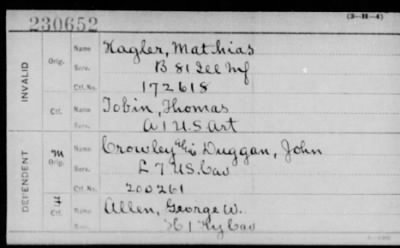 230652
(3-H-4)
INVALID
Orig.
Name Hagler, Mathias
Serv. B 81 Ill Inf
Ctf. No. 172618
Ctf.
Name Tobin, Thomas
Serv. A 1 U.S. Art
DEFENDENT
M
Orig.
Name Crowley alias Duggan, John
Serv. L 7 U.S. Cav
Ctf. No. 200261
Ctf.
Name Allen, George W.
Serv. H 1 Ky Cav